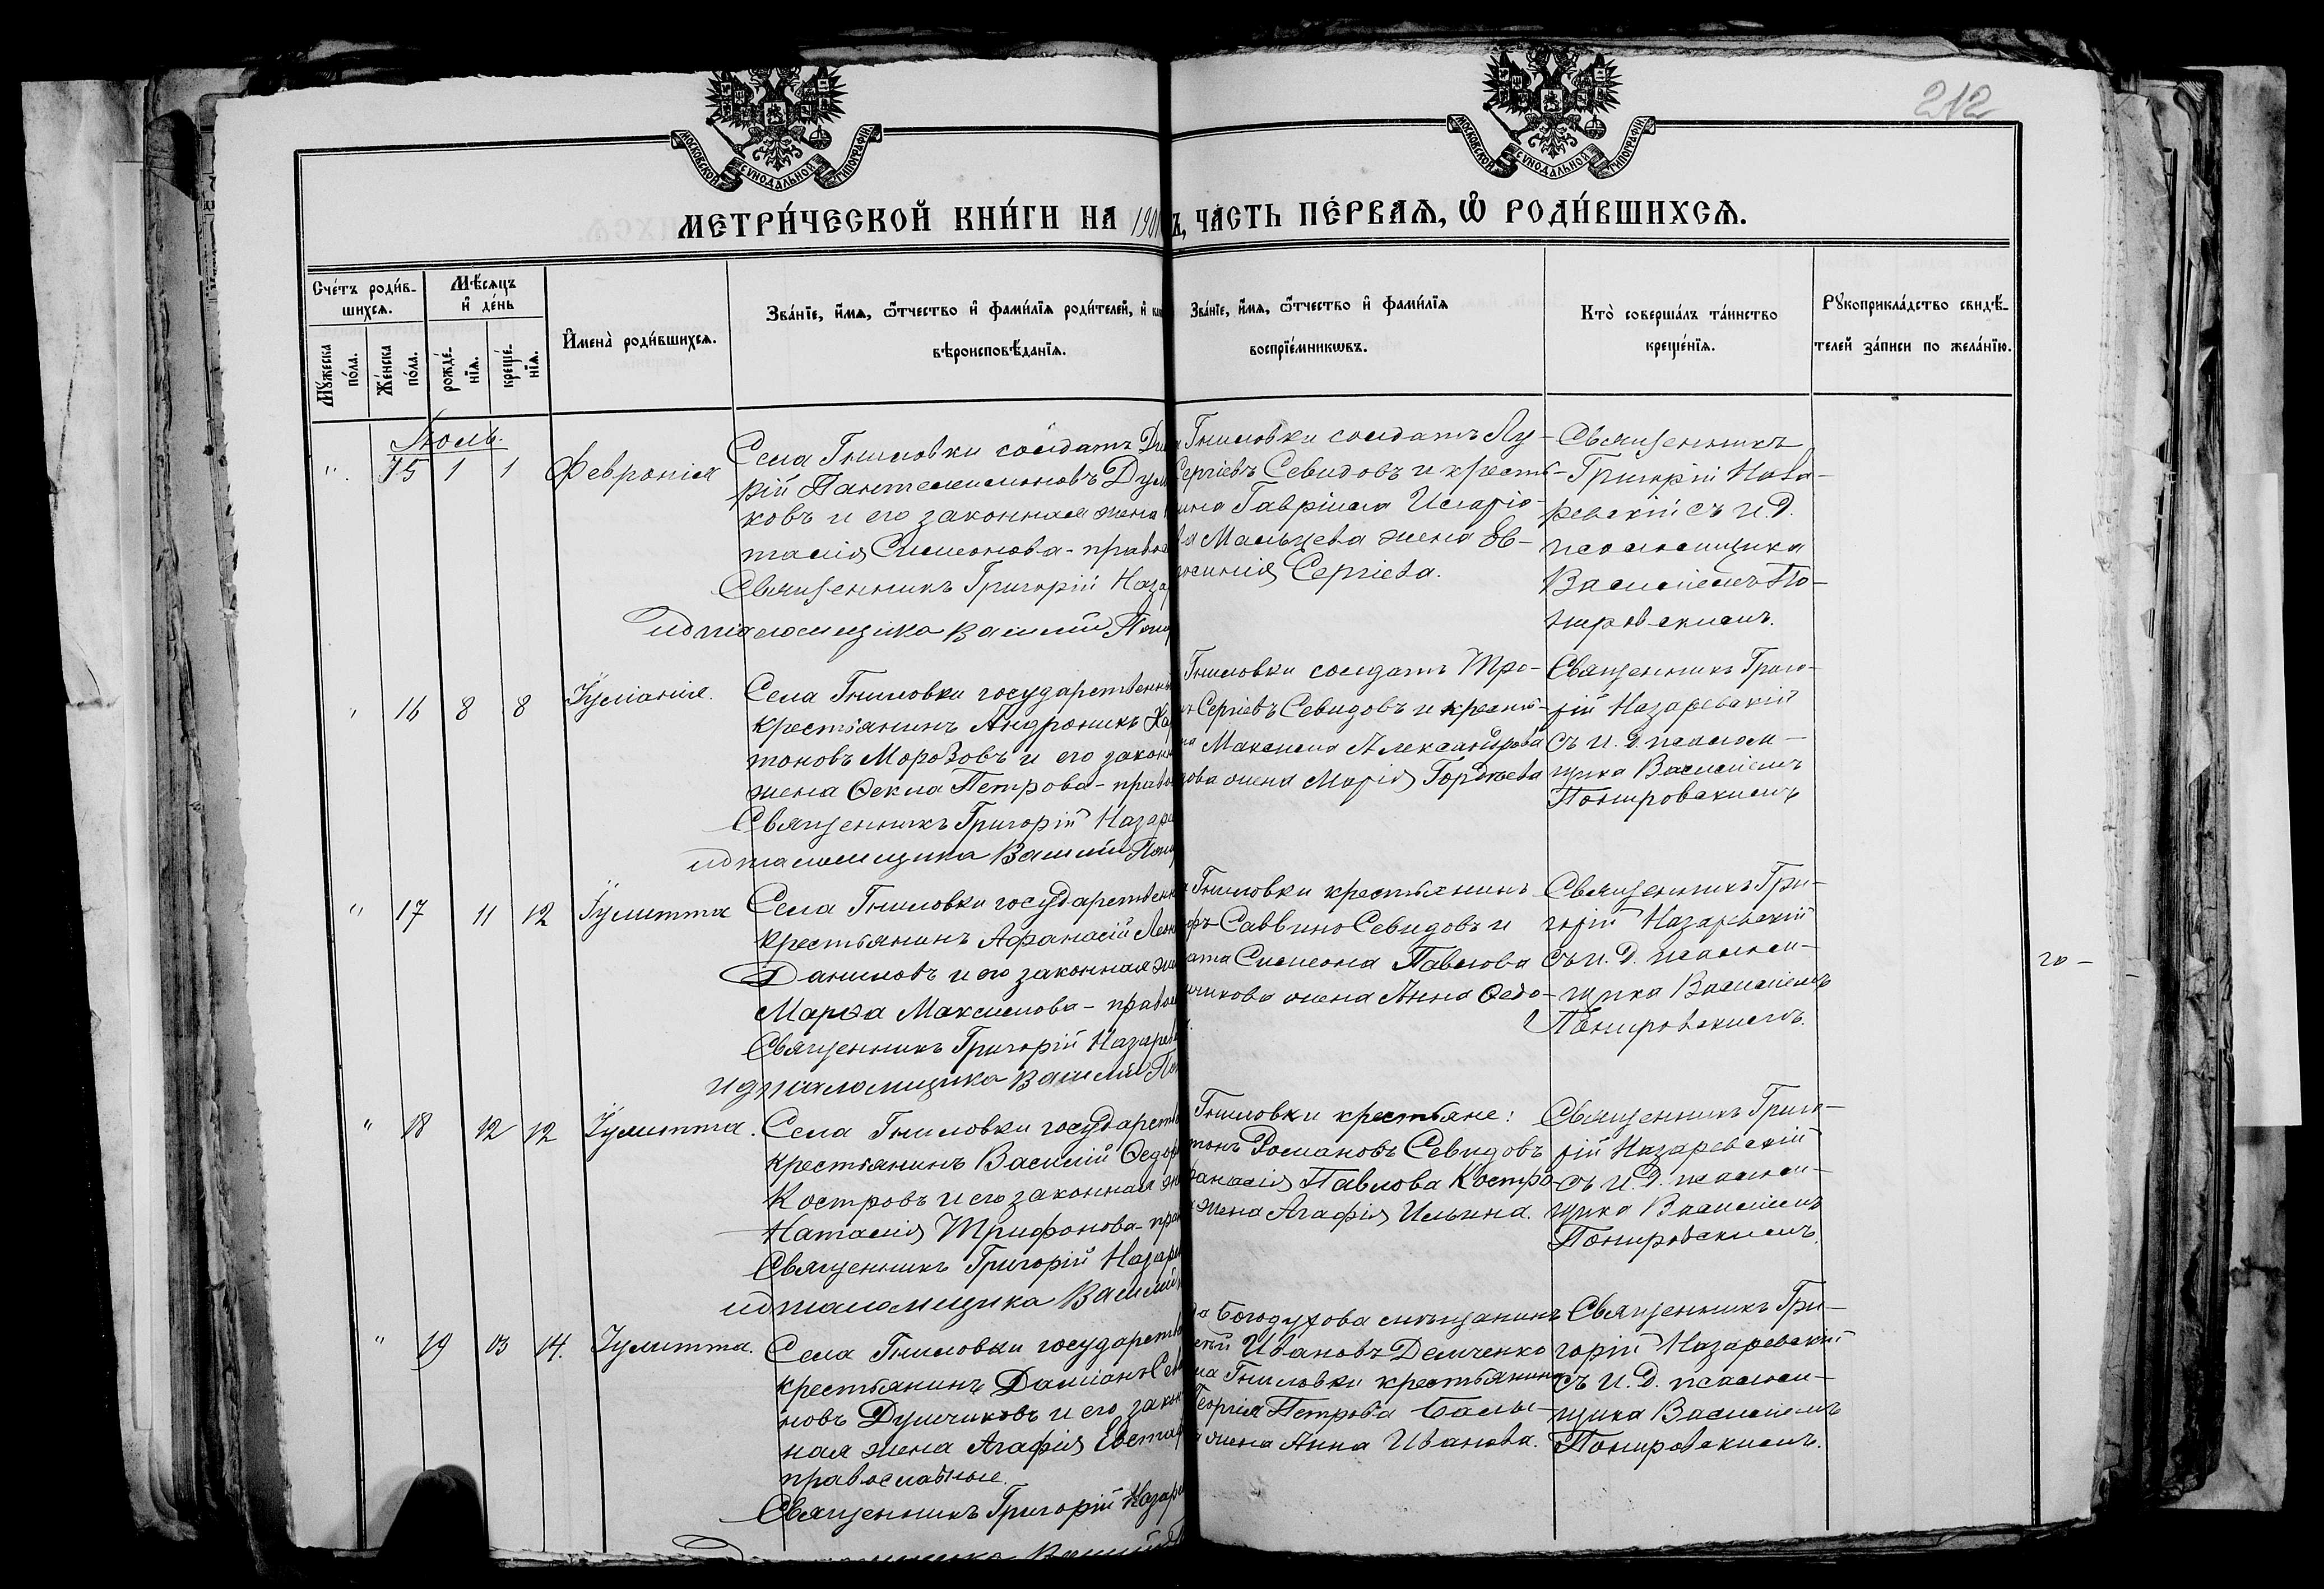 212
МОСКОВСКОЙ СѴНОДАЛЬНОЙ ТИПОГРАФІИ
МОСКОВСКОЙ СѴНОДАЛЬНОЙ ТИПОГРАФІИ
МЕТРИ́ЧЕСКОЙ КНИ́ГИ НА
Ъ, ЧА́СТЬ ПЕ́РВАѦ, Ѽ РОДИ́ВШИХСѦ.
Сче́тъ роди́в-
шихсѧ.
Мѣ́сѧцъ
и҆ де́нь
Мꙋ́жеска
по́ла.
Же́нска
по́ла.
рожде́-
нїѧ.
креще́-
нїѧ.
И҆мена̀ роди́вшихсѧ.
Зва́нїе, и҆́мѧ, ѻ҆́тчество и҆ фами́лїѧ роди́телей, и҆
вѣроисповѣ́данїѧ.
Зва́нїе, и҆́мѧ, ѻ҆́тчество и҆ фами́лїѧ
воспрїе́мникѡвъ.
Кто̀ соверша́лъ та́инство
креще́нїѧ.
Рꙋкоприкла́дство свидѣ́-
телей за́писи по жела́нїю.
Іюль.
". 15 1 1 Февронія
Села Гниловки солдатъ
рій Пантелеимоновъ
ковъ и его законная жена
талія Симеонова - право
Священникъ Григорій Наза
псаломщика Василий
Гниловки солдатъ Лу-
Сергіевъ Севидовъ и кресть-
Гавріила
Мальцева жена Ев-
Сергіева.
Священникъ
Григорій Наза-
ревскій съ и. д.
псаломщика
Василіемъ По-
нировскимъ.
" 16 8 8 Іуліанія.
Села Гниловки государственный
крестьянинъ Андроникъ
тоновъ Морозовъ и его законн
жена Ѳекла Петрова - право
Священникъ Григорій Назаре
псаломщика Василий
Гниловки солдатъ Тро-
Сергіевъ Севидовъ и крестья-
Максима Александрова
жена Марія Гордѣева
Священникъ Григо-
рій Назаревскій
съ и. д. псалом-
щика Василіемъ
Понировскимъ
" 17 11 12 Іулитта
Села Гниловки государственн
крестьянинъ Аѳанасій
Даниловъ и его законная
Марѳа Максимова - право
Священникъ Григорій Назарев
и д псаломщика Василий
Гниловки крестьянинъ
Саввинъ Севидовъ и
Симеона Павлова
жена Анна Ѳедо-
Священникъ Гри-
горій Назаревскій
съ и. д. псалом-
щика Василіемъ
Понировскимъ.
20 -
" 18 12 12 Іулитта.
Села Гниловки государств
крестьянинъ Василій Ѳедор
Костровъ и его законная
Наталія Трифонова - пра
Священникъ Григорій Назаре
псаломщика Василий
Гниловки крестьяне:
Романовъ Севидовъ
Павлова Костро-
жена Агафія Ильина.
Священникъ Григо-
рій Назаревскій
съ и. д. псалом-
щика Василіемъ
Понировскимъ.
" 19 13 14. Іулитта.
Села Гниловки государств
крестьянинъ Даміанъ
новъ Думчиковъ и его закон
ная жена Агафія Евстаф
православные.
Священникъ Григорій Назаре
Богодухова мѣщанинъ
Ивановъ Демченко
Гниловки крестьянина
Георгія Петрова
жена Анна Иванова.
Священникъ Гри-
горій Назаревскій
съ и. д. псалом-
щика Василіемъ
Понировскимъ.